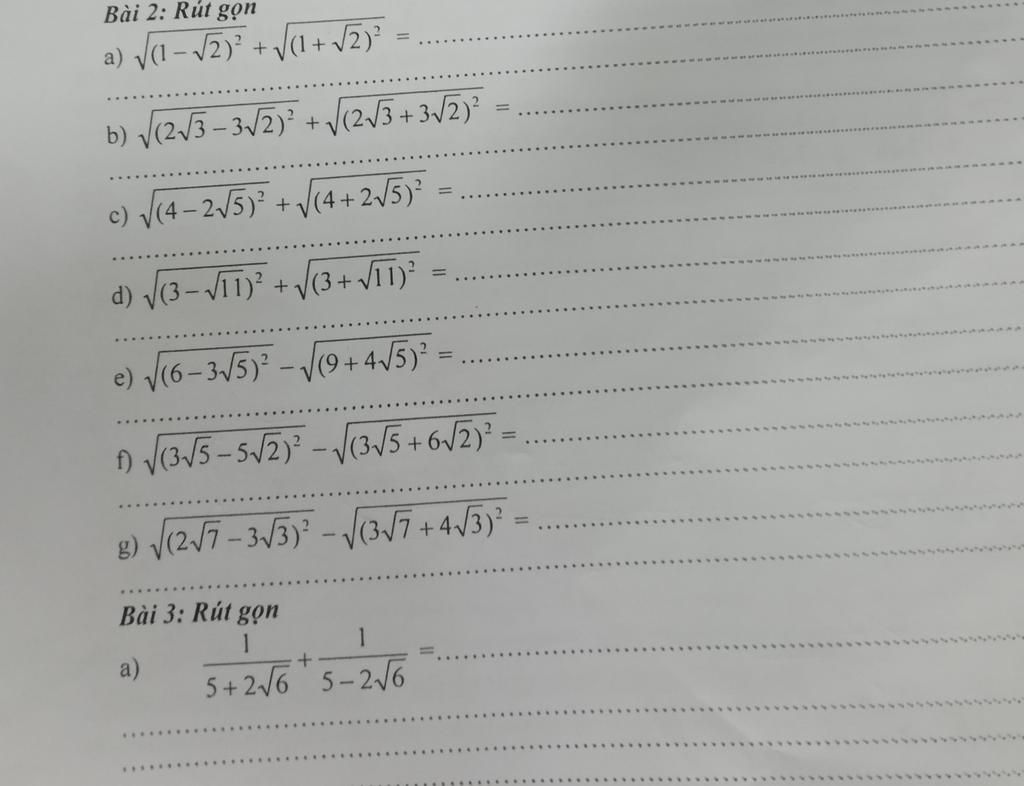 Bài 2: Rút gọn
a) √(1 − √2)² + √(1 + √2)² = ..............................
b) √(2√3 − 3√2)² + √(2√3 + 3√2)² = ..............................
c) √(4 − 2√5)² + √(4 + 2√5)² = ..............................
d) √(3 − √11)² + √(3 + √11)² = ..............................
e) √(6 − 3√5)² − √(9 + 4√5)² = ..............................
f) √(3√5 − 5√2)² − √(3√5 + 6√2)² = ..............................
g) √(2√7 − 3√3)² − √(3√7 + 4√3)² = ..............................
Bài 3: Rút gọn
a) 1/(5 + 2√6) + 1/(5 − 2√6) = ..............................